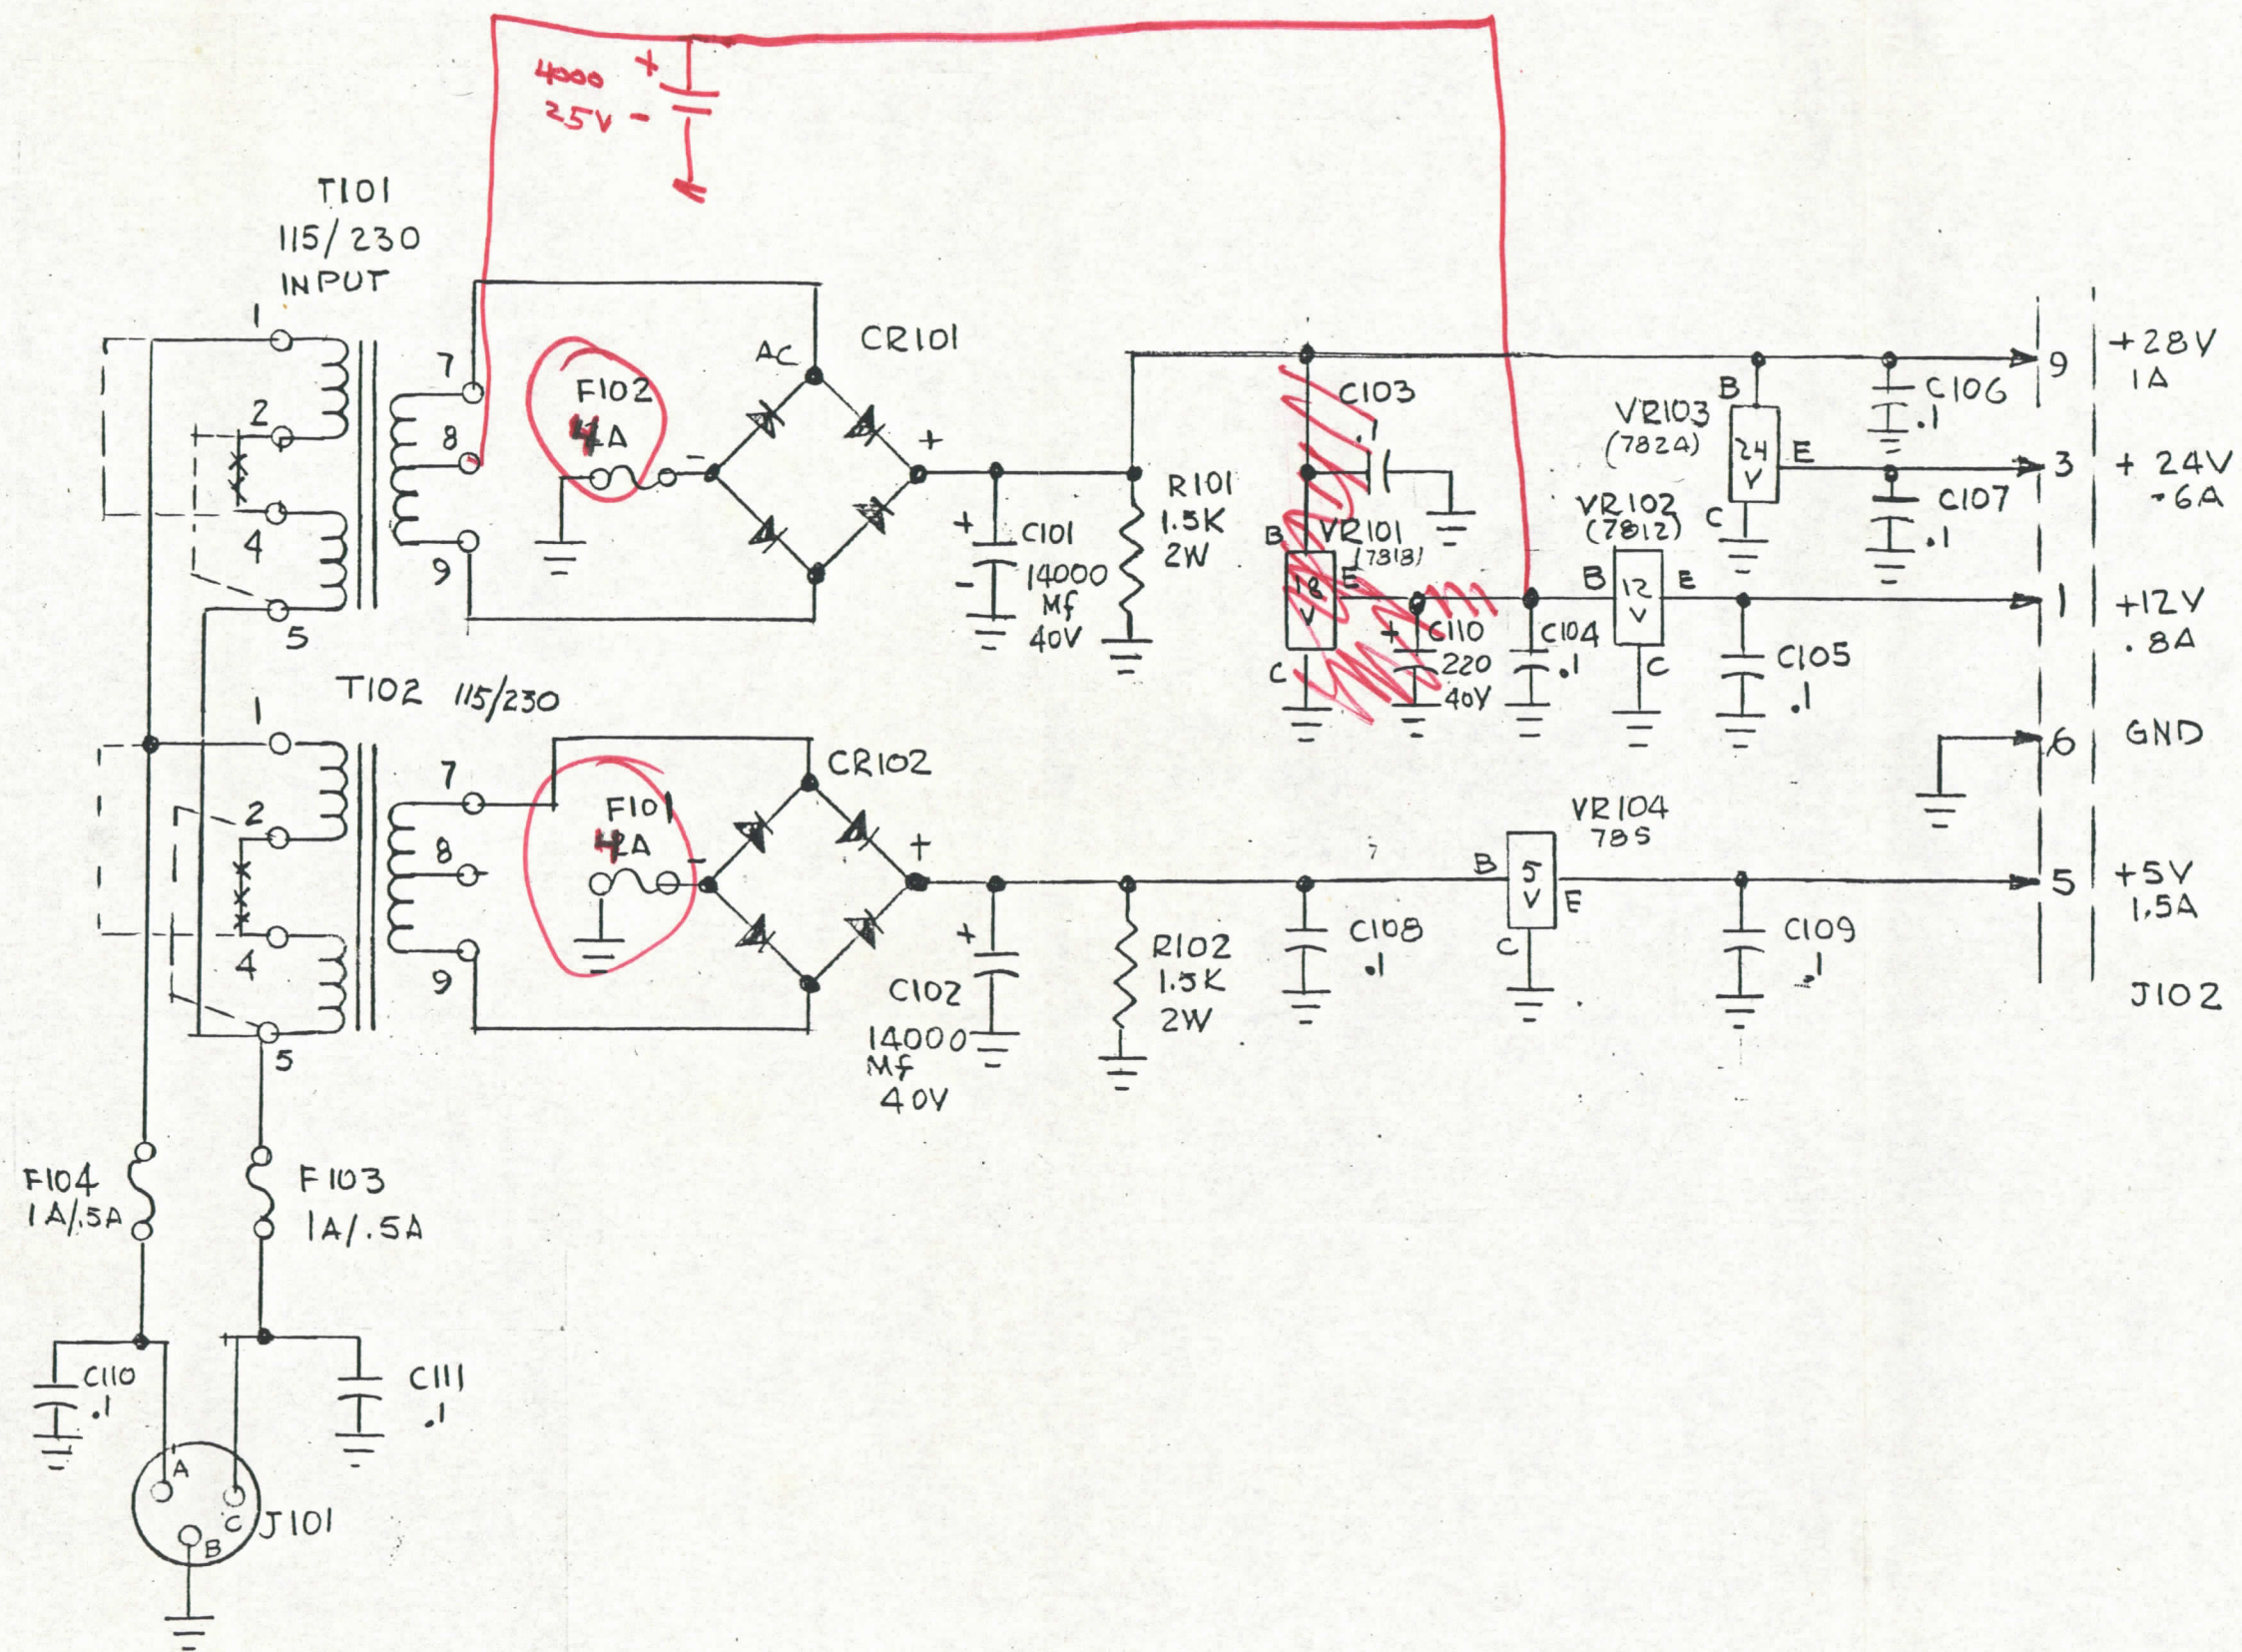 4000 +
25V -
T101
115/230
INPUT
1
2
4
5
7
8
9
F102
4A
AC
CR101
-
+
+
-
C101
14000
Mf
40V
R101
1.5K
2W
C103
.1
B
VR101
(7818)
18
V
E
C
+
C110
220
40V
C104
.1
VR102
(7812)
B
12
V
E
C
C105
.1
VR103
(7824)
B
24
V
E
C
C106
.1
C107
.1
9
+28V
1A
3
+ 24V
.6A
1
+12V
.8A
6
GND
5
+5V
1.5A
J102
T102 115/230
1
2
4
5
7
8
9
F101
4A
CR102
-
+
+
C102
14000
Mf
40V
R102
1.5K
2W
C108
.1
VR104
785
B
5
V
E
C
C109
.1
F104
1A/.5A
F103
1A/.5A
C110
.1
C111
.1
A
C
B
J101